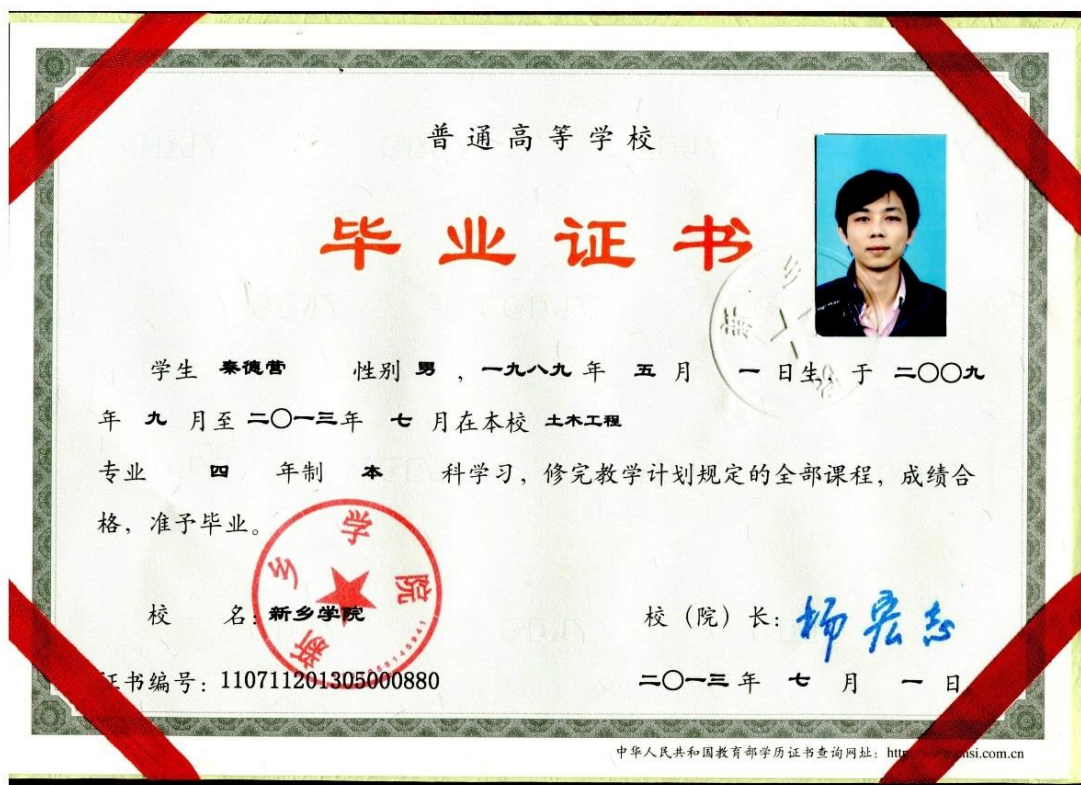 普通高等学校
毕业证书
学生 秦德营 性别 男 ，一九八九 年 五 月 一 日生，于 二〇〇九
年 九 月至 二〇一三年 七 月在本校 土木工程
专业 四 年制 本 科学习，修完教学计划规定的全部课程，成绩合
格，准予毕业。
校 名：新乡学院
校（院）长：杨宏志
证书编号：110711201305000880
二〇一三 年 七 月 一 日
新乡学院
中华人民共和国教育部学历证书查询网址：http
si.com.cn